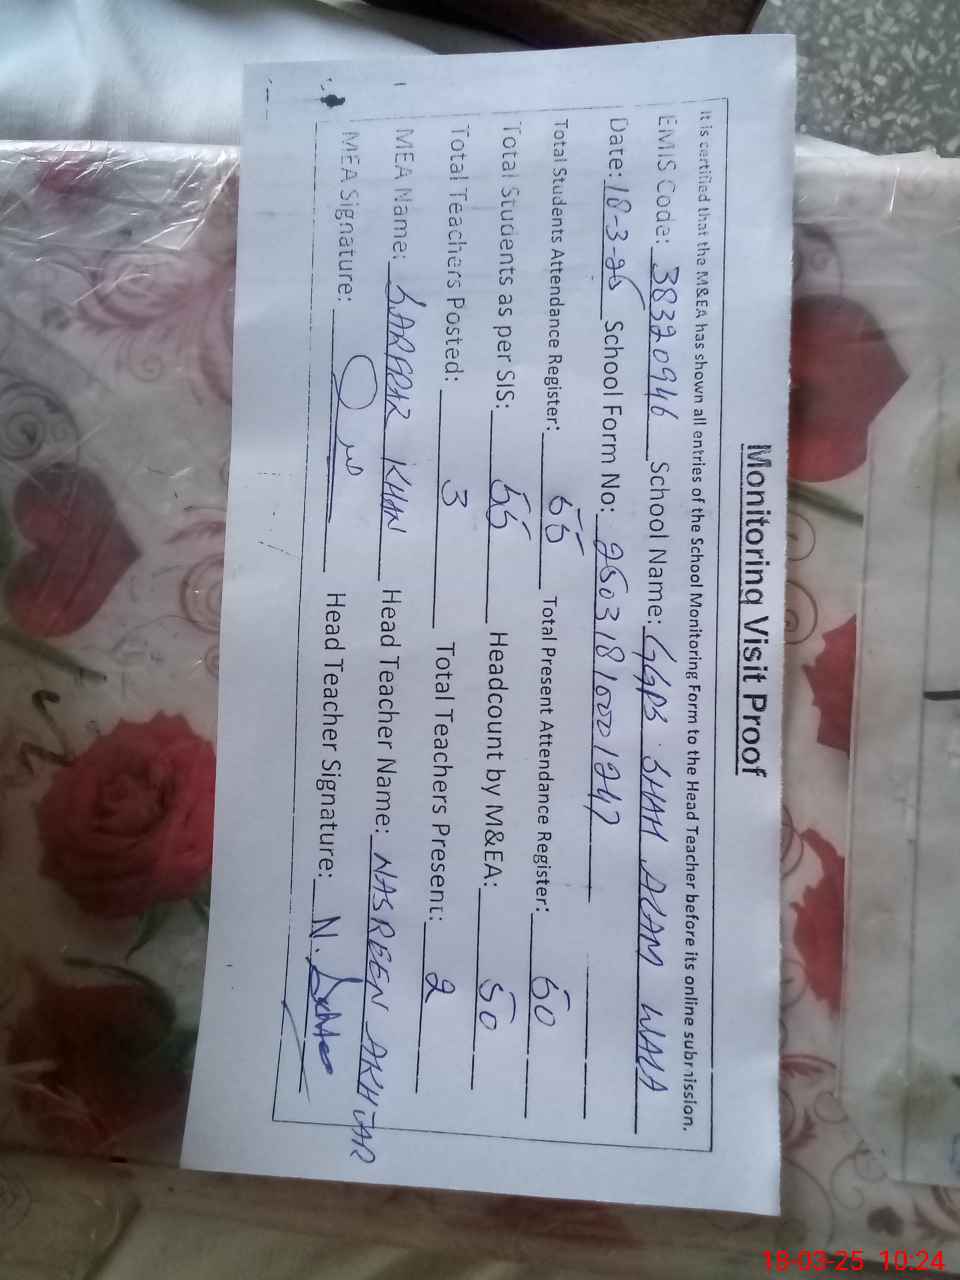 Monitoring Visit Proof
It is certified that the M&EA has shown all entries of the School Monitoring Form to the Head Teacher before its online submission.
EMIS Code: 38320946 School Name: GGPS SHAH ALAM WALA
Date: 18-3-25 School Form No: 250318100001247
Total Students Attendance Register: 55 Total Present Attendance Register: 50
Total Students as per SIS: 55 Headcount by M&EA: 50
Total Teachers Posted: 3 Total Teachers Present: 2
MEA Name: SARFRAZ KHAN Head Teacher Name: NASREEN AKHTAR
MEA Signature: Head Teacher Signature: N. Akhtar
18-03-25 10:24